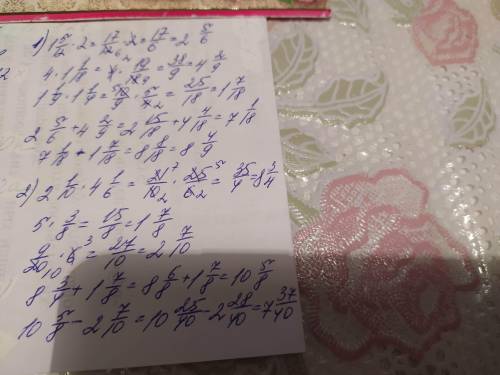 1) 1 5/12 · 2 = 17/12 · 2 = 17/6 = 2 5/6
4 · 1 1/18 = 4 · 19/18 = 38/9 = 4 2/9
1 1/9 · 1 1/4 = 10/9 · 5/4 = 25/18 = 1 7/18
2 5/6 + 4 2/9 = 2 15/18 + 4 4/18 = 7 1/18
7 1/18 + 1 7/18 = 8 8/18 = 8 4/9
2) 2 1/10 · 4 1/6 = 21/10 · 25/6 = 35/4 = 8 3/4
5 · 3/8 = 15/8 = 1 7/8
9/20 · 6 = 27/10 = 2 7/10
8 3/4 + 1 7/8 = 8 6/8 + 1 7/8 = 10 5/8
10 5/8 - 2 7/10 = 10 25/40 - 2 28/40 = 7 37/40